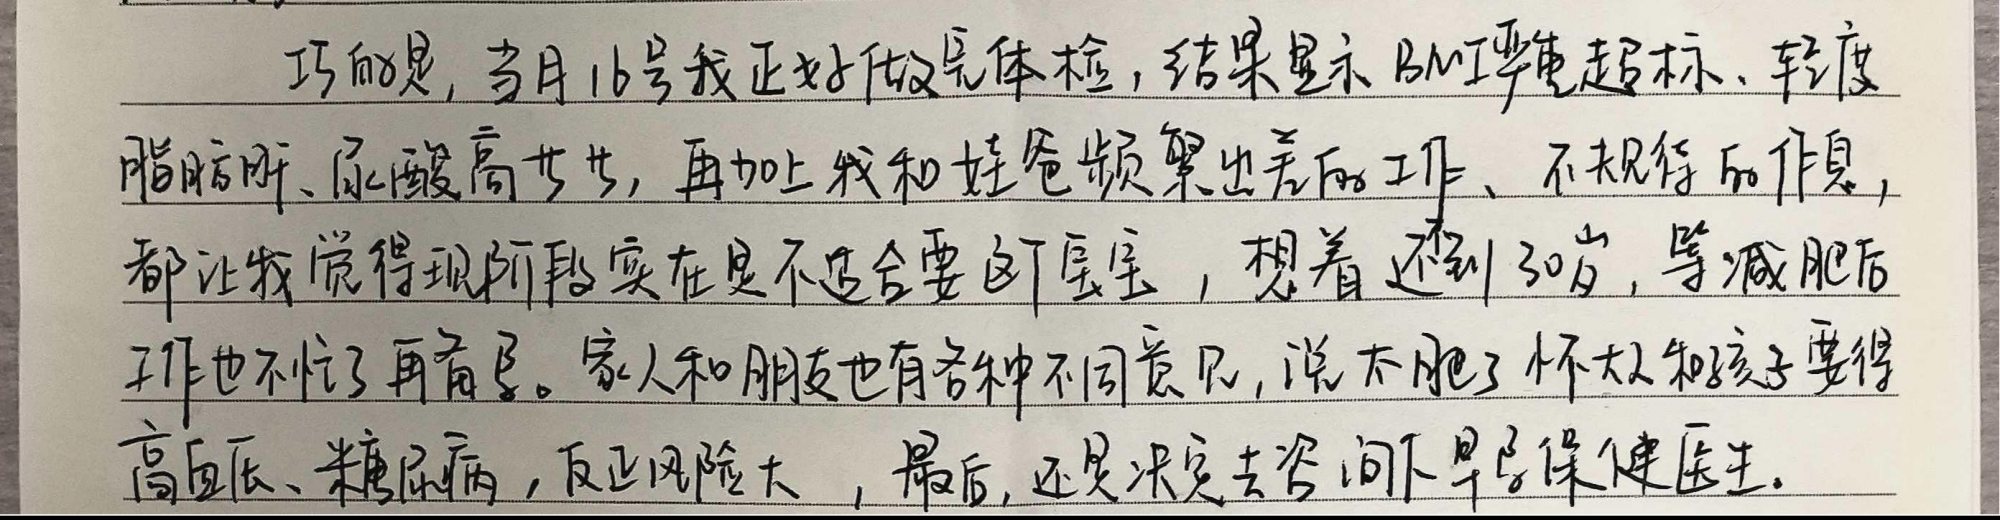 巧的是，当月16号我正好做完体检，结果显示BMI严重超标、轻度
脂肪肝、尿酸高等等，再加上我和娃爸频繁出差的工作、不规律的作息，
都让我觉得现阶段实在是不适合要这个宝宝，想着还不到30岁，等减肥后
工作也不忙了再备孕。家人和朋友也有各种不同意见，说太胖了怀大人和孩子要得
高血压、糖尿病，反正风险大，最后，还是决定去咨询下早孕保健医生。